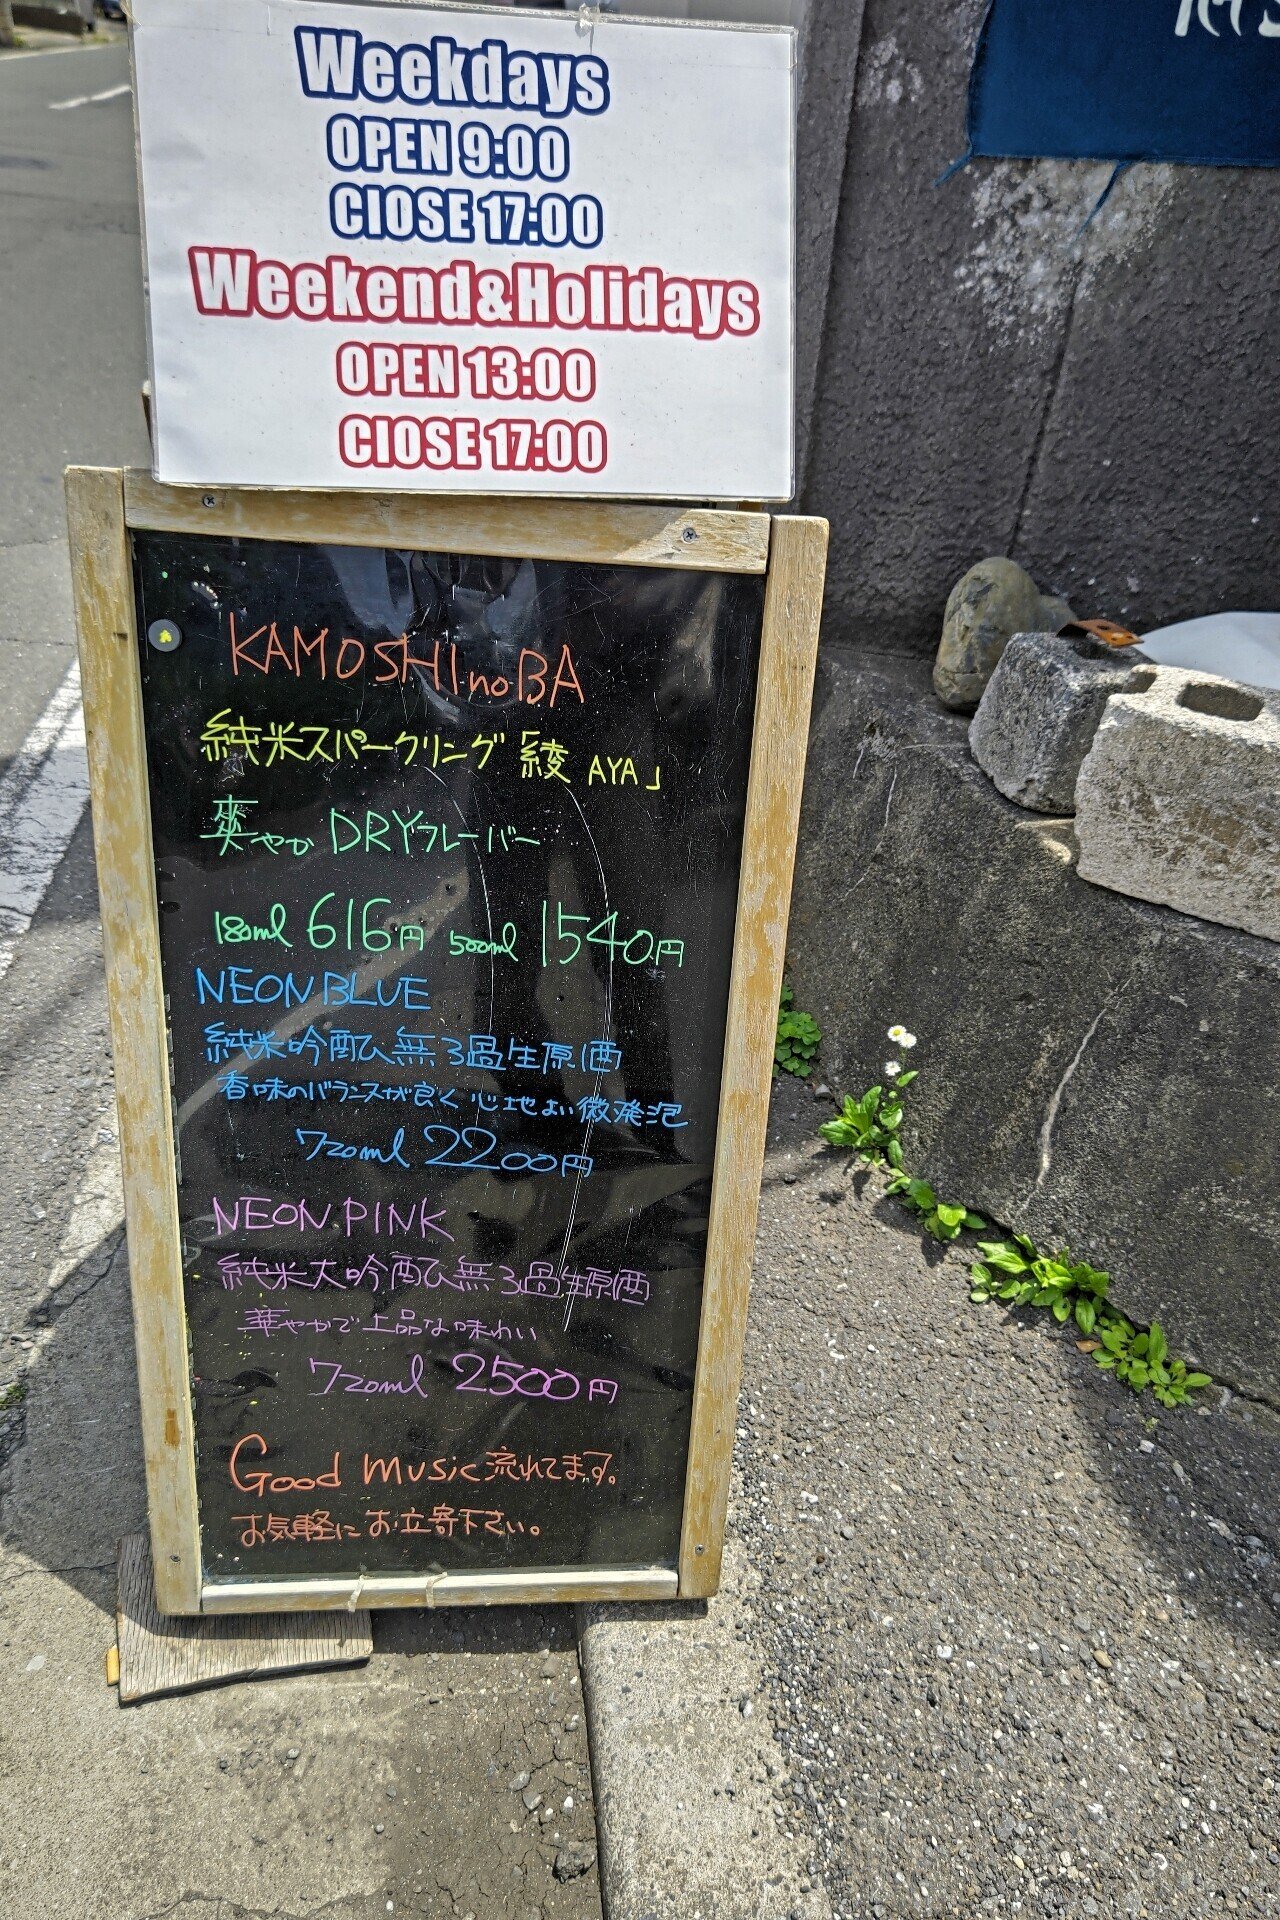 Weekdays
OPEN 9:00
ClOSE 17:00
Weekend&Holidays
OPEN 13:00
ClOSE 17:00
KAMOSHInoBA
純米スパークリング「綾 AYA」
爽やか DRYフレーバー
180ml 616円 500ml 1540円
NEON BLUE
純米吟醸無ろ過生原酒
香味のバランスが良く心地よい微発泡
720ml 2200円
NEON PINK
純米大吟醸無ろ過生原酒
華やかで上品な味わい
720ml 2500円
Good music 流れてます。
お気軽にお立寄下さい。